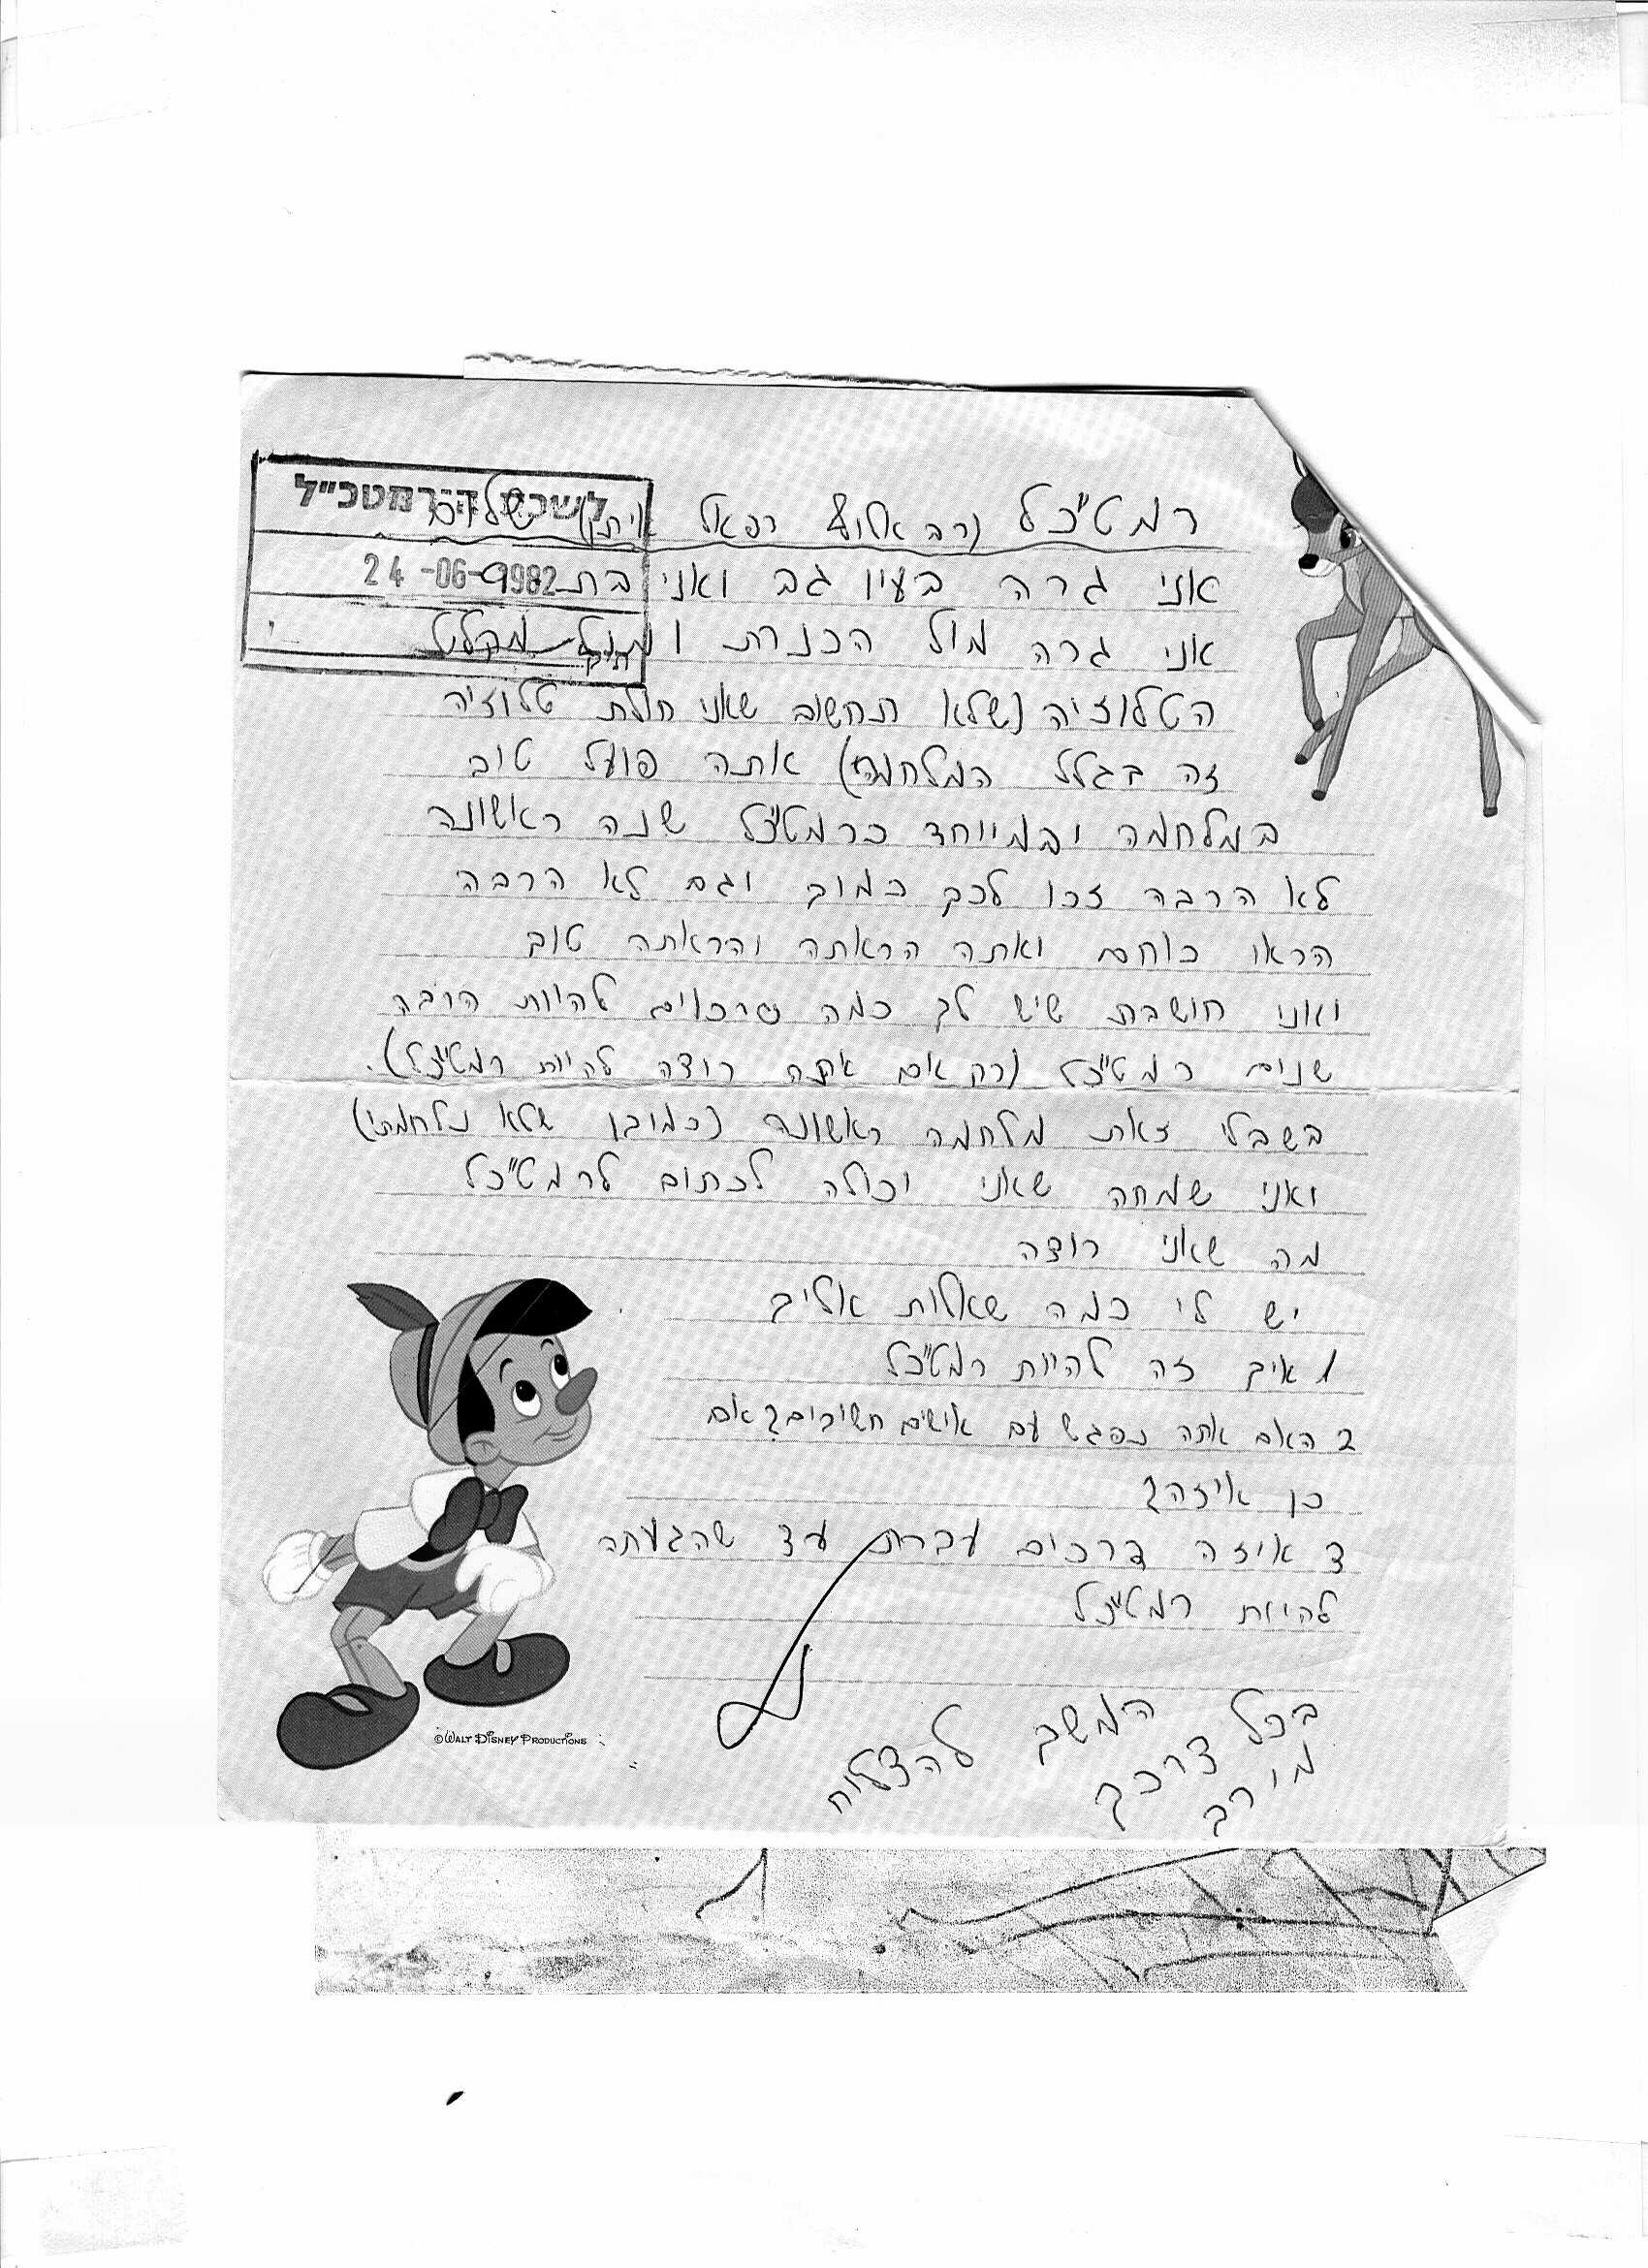 לשכת הרמטכ"ל
24-06-1982
תיק
רמט"כל (רב אלוף רפאל איתן) שלום
אני גרה בעין גב ואני בת 9
אני גרה מול הכנרת
הטלוזיה (שלא תחשוב שאני חולת טלוזיה
זה בגלל המלחמה) אתה פועל טוב
במלחמה ובמיוחד כרמט"כל שנה ראשונה
לא הרבה זכו לכך כמוך וגם לא הרבה
הראו כוחם ואתה הראתה והראתה טוב
ואני חושבת שיש לך כמה סיכוים להיות הרבה
שנים רמט"כל (רק אם אתה רוצה להיות רמט"כל).
בשבלי זאת מלחמה ראשונה (כמובן שלא נלחמתי)
ואני שמחה שאני יכולה לכתוב לרמט"כל
מה שאני רוצה
יש לי כמה שאלות אליך
1 איך זה להיות רמט"כל
2 האם אתה נפגש עם אישים חשובים? אם
כן איזה?
3 איזה דרכים עברת עד שהגעתה
להיות רמט"כל
המשך להצליח
בכל דרכך
מירב
©WALT DISNEY PRODUCTIONS